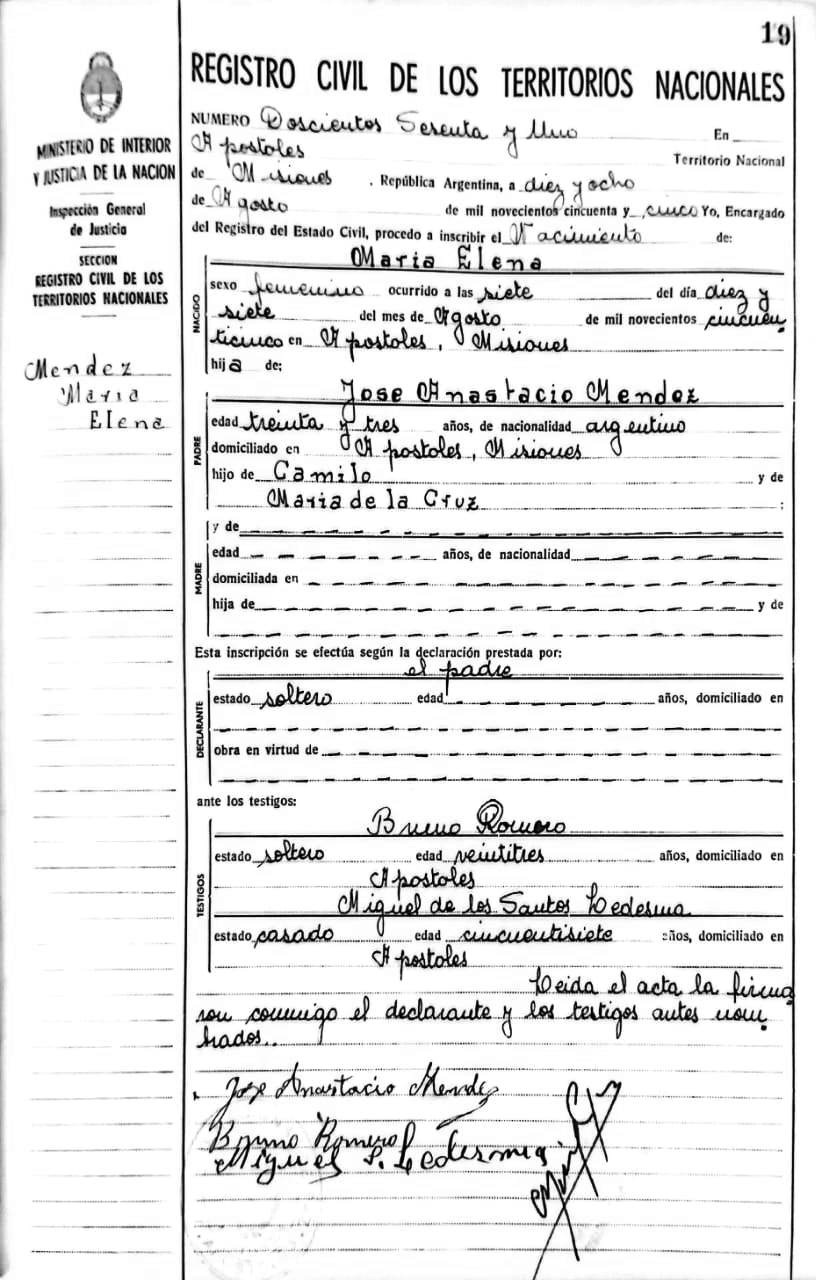 19
REGISTRO CIVIL DE LOS TERRITORIOS NACIONALES
MINISTERIO DE INTERIOR
Y JUSTICIA DE LA NACION
Inspección General
de Justicia
SECCION
REGISTRO CIVIL DE LOS
TERRITORIOS NACIONALES
Mendez
Maria
Elena
NUMERO Doscientos Sesenta y Uno En
Apostoles Territorio Nacional
de Misiones , República Argentina, a diez y ocho
de Agosto de mil novecientos cincuenta y cinco Yo, Encargado
del Registro del Estado Civil, procedo a inscribir el Nacimiento de:
NACIDO
Maria Elena
sexo femenino ocurrido a las siete del día diez y
siete del mes de Agosto de mil novecientos cincuen
ticinco en Apostoles, Misiones
hija de:
PADRE
Jose Anastacio Mendez
edad treinta y tres años, de nacionalidad argentino
domiciliado en Apostoles, Misiones
hijo de Camilo y de
Maria de la Cruz :
MADRE
y de
edad años, de nacionalidad
domiciliada en
hija de y de
Esta inscripción se efectúa según la declaración prestada por:
DECLARANTE
el padre
estado soltero edad años, domiciliado en
obra en virtud de
ante los testigos:
TESTIGOS
Bruno Romero
estado soltero edad veintitres años, domiciliado en
Apostoles
Miguel de los Santos Ledesma
estado casado edad cincuentisiete años, domiciliado en
Apostoles
Leida el acta la firma
ron conmigo el declarante y los testigos antes nom
brados..
Jose Anastacio Mendez
Bruno Romero
Miguel S. Ledesma